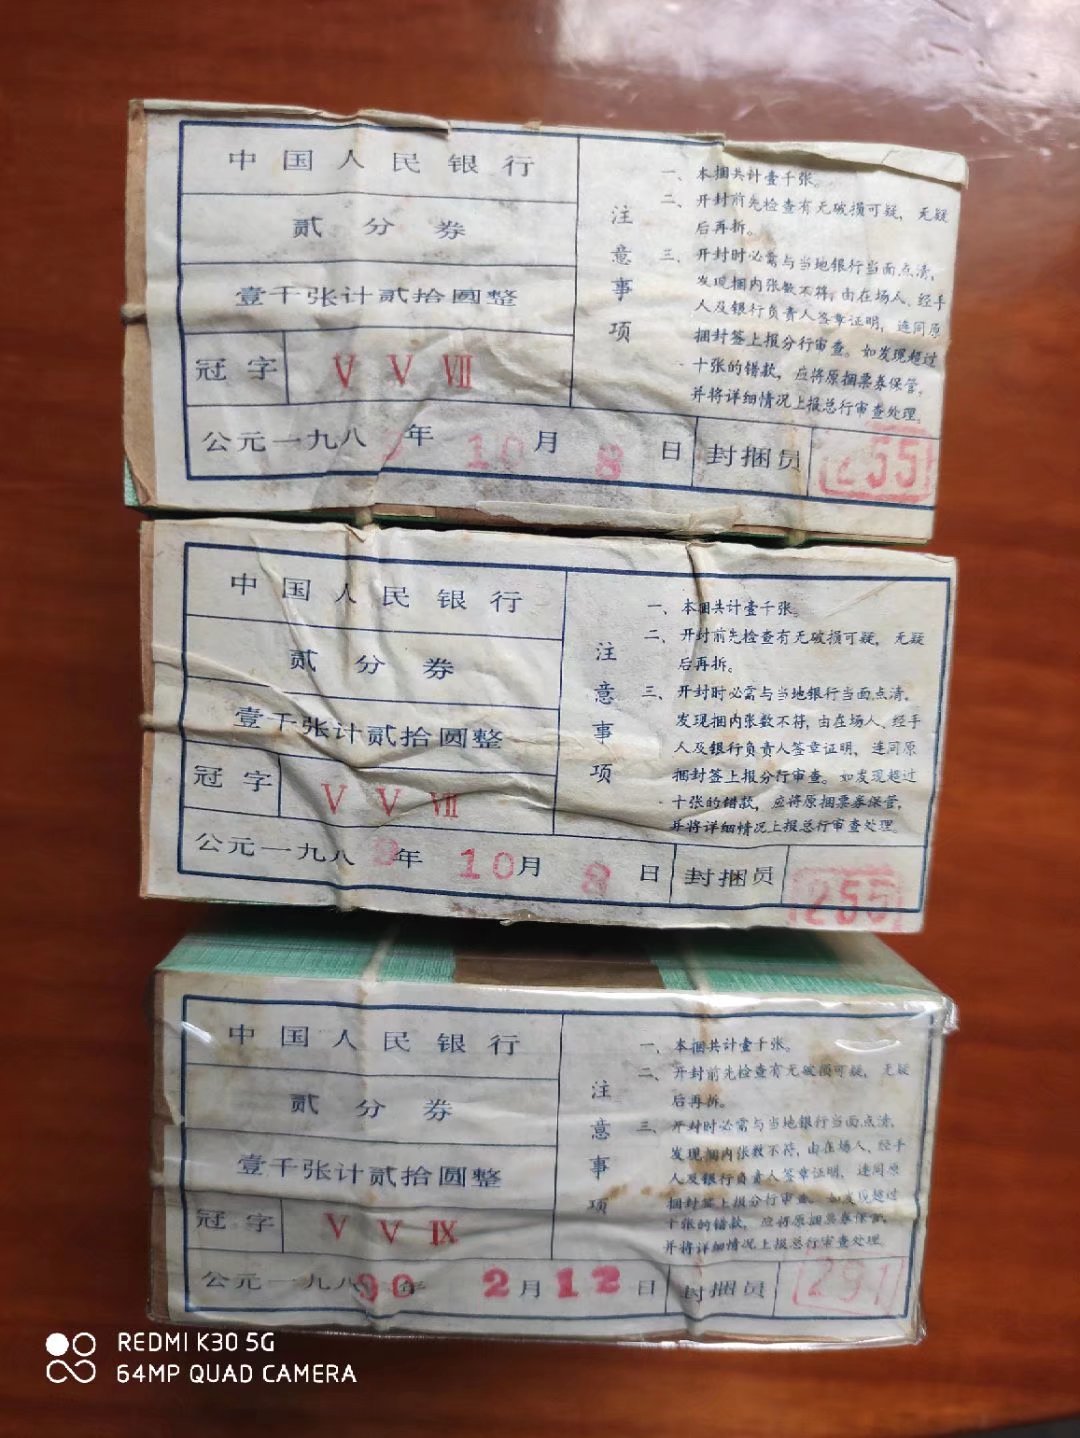 中国人民银行
贰分券
壹千张计贰拾圆整
冠字 V V VII
公元一九八 年 10月8日 封捆员 255
注意事项
一、本捆共计壹千张。
二、开封前先检查有无破损可疑，无疑
后再拆。
三、开封时必需与当地银行当面点清，
发现捆内张数不符，由在场人、经手
人及银行负责人签章证明，连同原
捆封签上报分行审查。如发现超过
十张的错款，应将原捆票券保管，
并将详细情况上报总行审查处理。
中国人民银行
贰分券
壹千张计贰拾圆整
冠字 V V VII
公元一九八 年 10月8日 封捆员 255
注意事项
一、本捆共计壹千张。
二、开封前先检查有无破损可疑，无疑
后再拆。
三、开封时必需与当地银行当面点清，
发现捆内张数不符，由在场人、经手
人及银行负责人签章证明，连同原
捆封签上报分行审查。如发现超过
十张的错款，应将原捆票券保管，
并将详细情况上报总行审查处理。
中国人民银行
贰分券
壹千张计贰拾圆整
冠字 V V IX
公元一九八90年 2月12日 封捆员 291
注意事项
一、本捆共计壹千张。
二、开封前先检查有无破损可疑，无疑
后再拆。
三、开封时必需与当地银行当面点清，
发现捆内张数不符，由在场人、经手
人及银行负责人签章证明，连同原
捆封签上报分行审查。如发现超过
十张的错款，应将原捆票券保管，
并将详细情况上报总行审查处理
REDMI K30 5G
64MP QUAD CAMERA